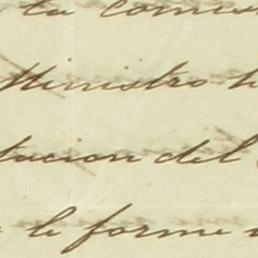 ta comis
Ministro h
tacion del
le forme